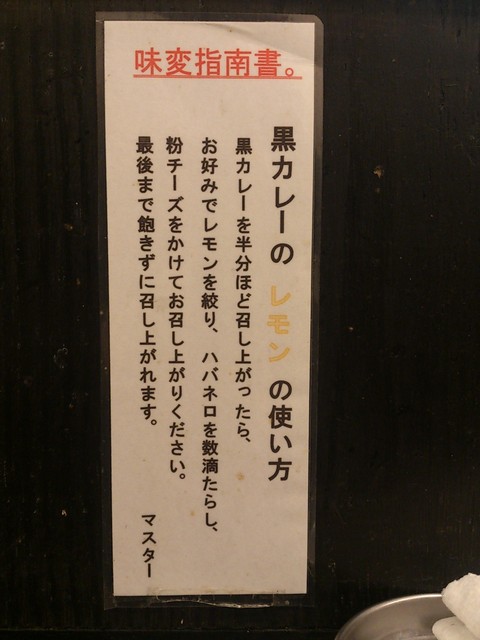 味変指南書。
黒カレーの レモン の使い方
黒カレーを半分ほど召し上がったら、
お好みでレモンを絞り、ハバネロを数滴たらし、
粉チーズをかけてお召し上がりください。
最後まで飽きずに召し上がれます。
マスター